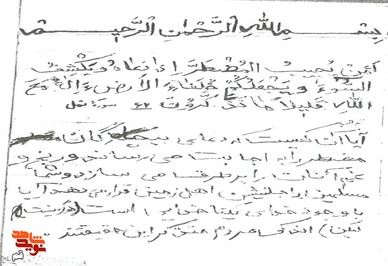 بسم الله الرحمن الرحیم
امن یجیب المضطر اذا دعاه و یکشف
السوء و یجعلکم خلفاء الارض ءاله مع
الله قلیلا ما تذکرون ۶۲ سوره نمل
آیا آن کیست که دعای بیچارگان
مضطر را به اجابت می رساند و رنج و
غم آنان را بر طرف می سازد و شما
مسلمین را جانشین اهل زمین قرار می دهد آیا
با وجود خدای یکتا خدایی است
اندکی مردم متذکر این حقیقتند
نوید شاهد